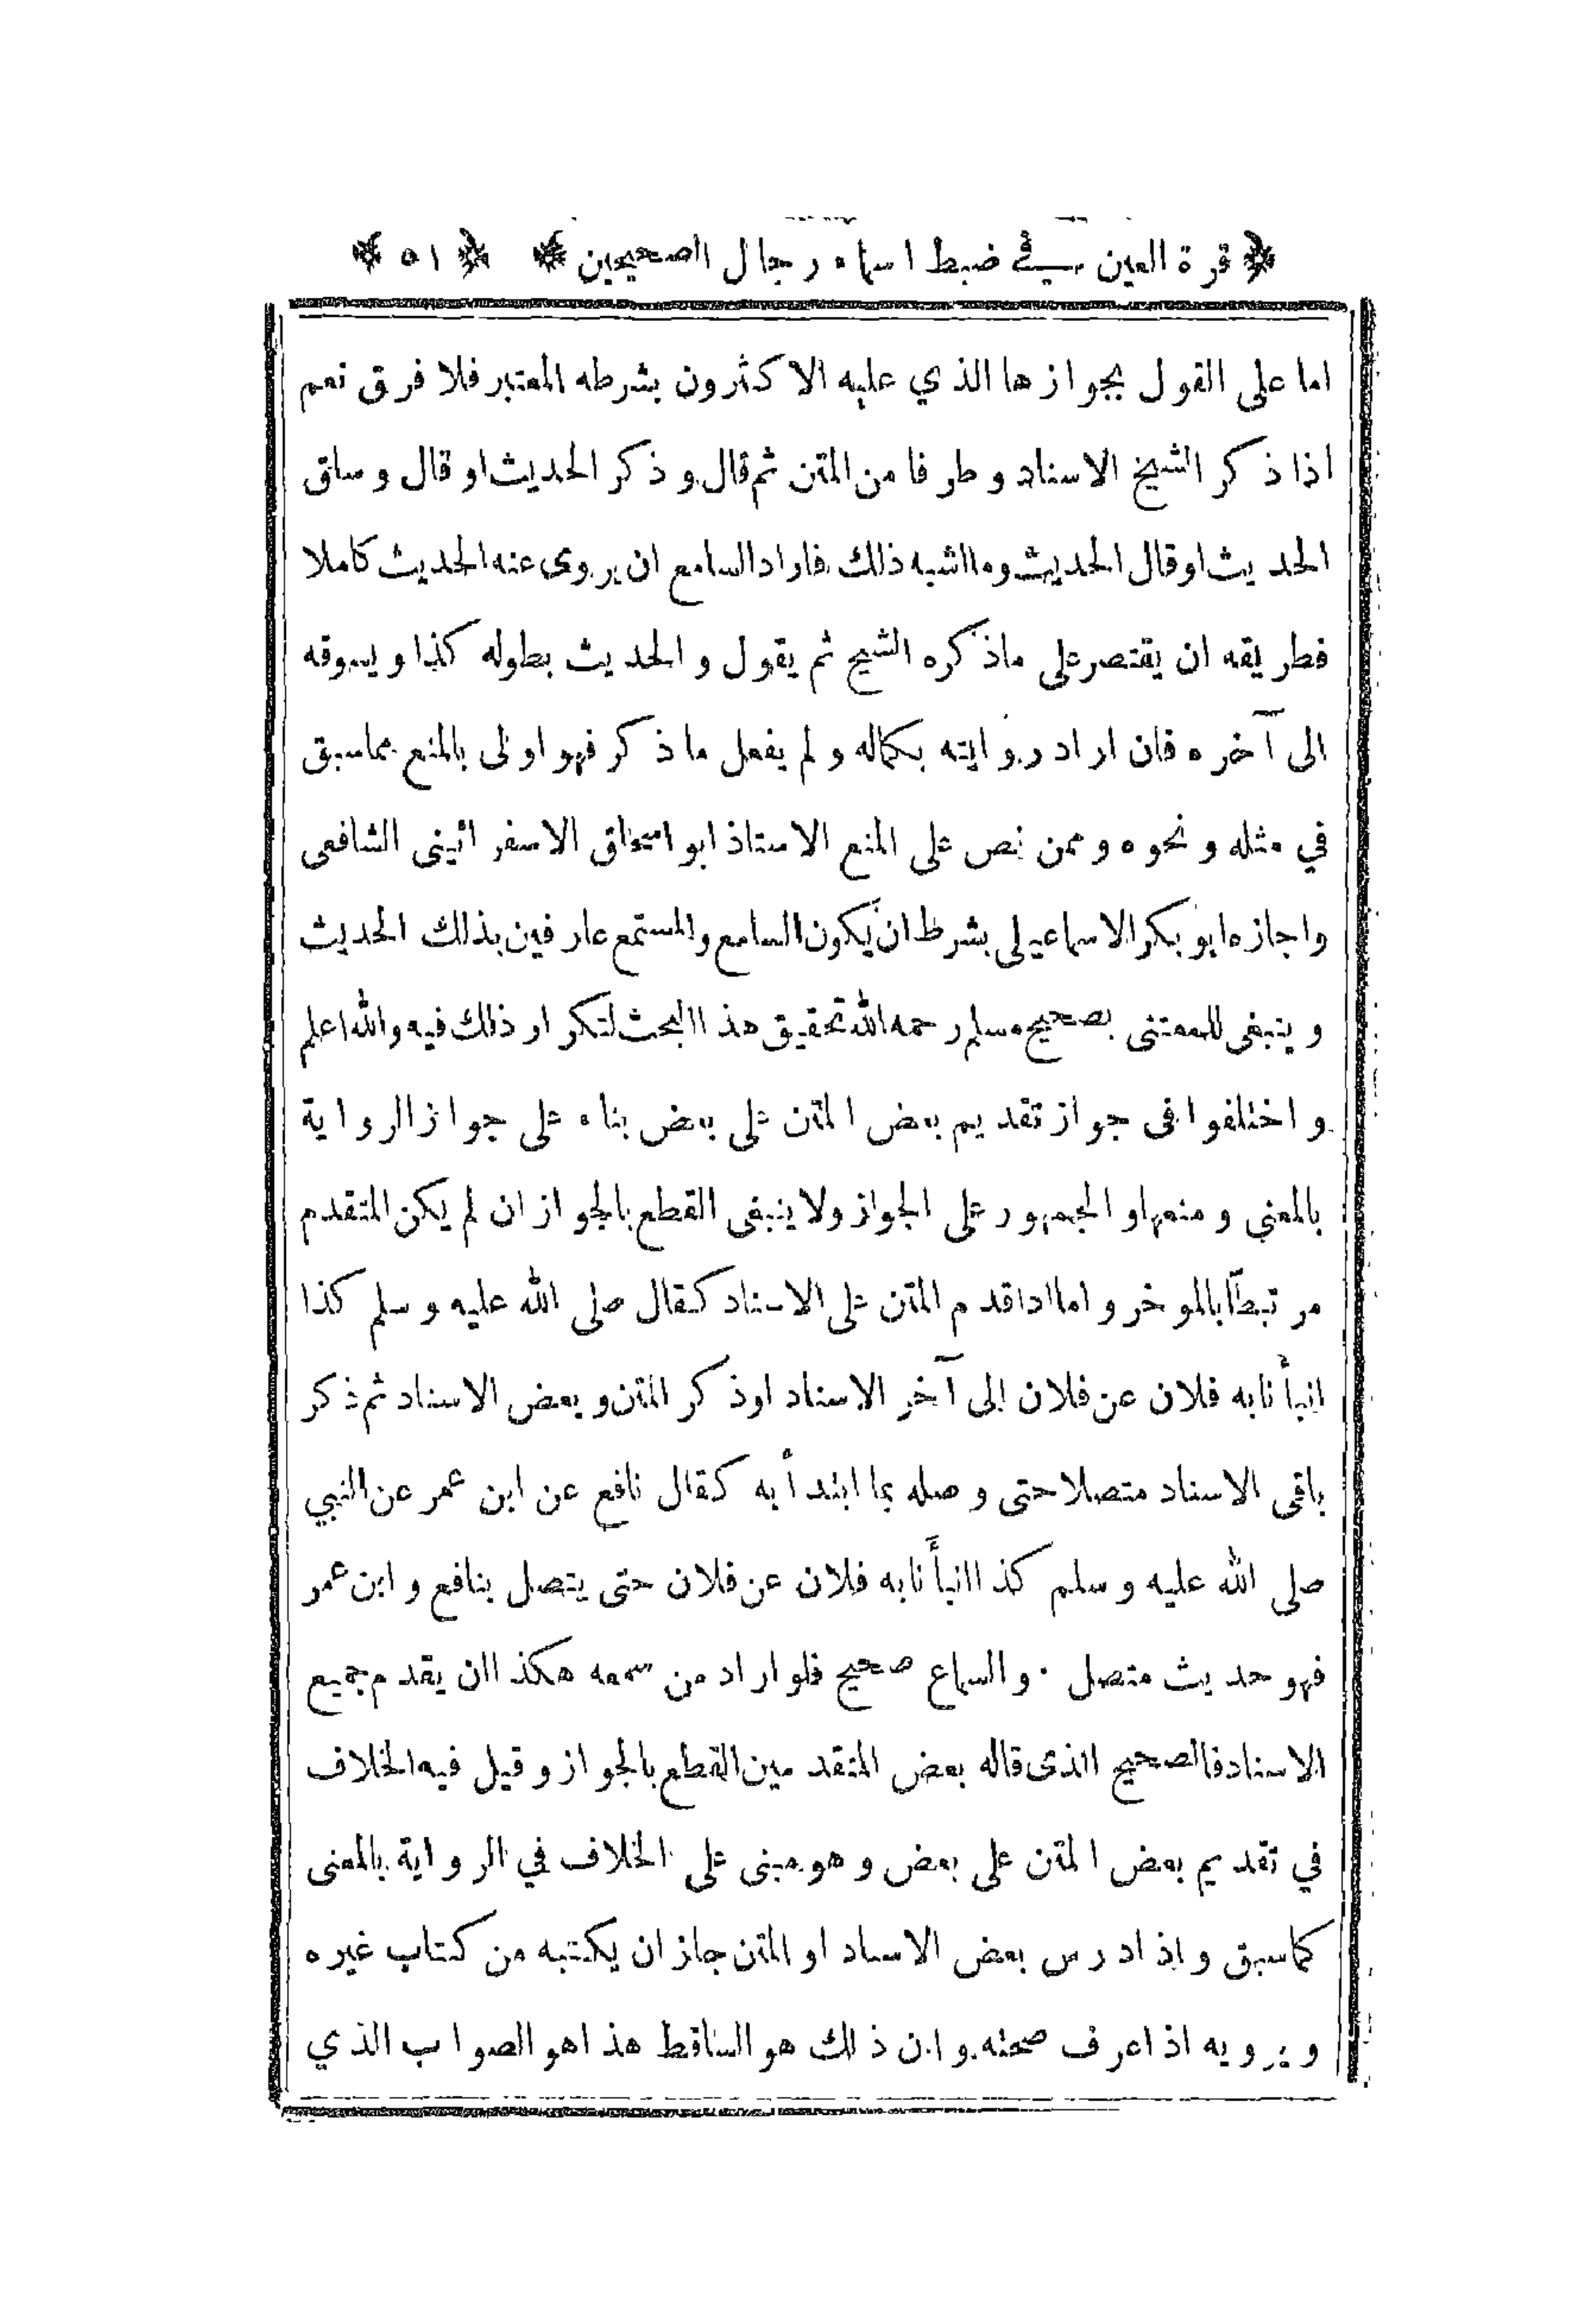 قرة العين في ضبط اسماء رجال الصحيحين ٥١
اما على القول بجوازها الذي عليه الاكثرون بشرطه المعتبر فلا فرق نعم
اذا ذكر الشيخ الاسناد وطرفا من المتن ثم قال وذكر الحديث او قال وساق
الحديث او قال الحديث وما اشبه ذلك فاراد السامع ان يروى عنه الحديث كاملا
فطريقه ان يقتصر على ماذكره الشيخ ثم يقول والحديث بطوله كذا ويسوقه
الى آخره فان اراد روايته بكماله ولم يفعل ما ذكر فهو اولى بالمنع مماسبق
في مثله ونحوه وممن نص على المنع الاستاذ ابو اسحاق الاسفرائينى الشافعى
واجازه ابو بكر الاسماعيلى بشرط ان يكون السامع والمستمع عارفين بذلك الحديث
وينبغى للمعتنى بصحيح مسلم رحمه الله تحقيق هذا البحث لتكرار ذلك فيه والله اعلم
واختلفوا فى جواز تقديم بعض المتن على بعض بناء على جواز الرواية
بالمعنى ومنعها والجمهور على الجواز ولا ينبغى القطع بالجواز ان لم يكن المتقدم
مرتبطاً بالموخر واما اذا قدم المتن على الاسناد كقال صلى الله عليه وسلم كذا
انبأنابه فلان عن فلان الى آخر الاسناد اوذكر المتن وبعض الاسناد ثم ذكر
باقى الاسناد متصلا حتى وصله بما ابتدأ به كقال نافع عن ابن عمر عن النبي
صلى الله عليه وسلم كذا انبأنا به فلان عن فلان حتى يتصل بنافع وابن عمر
فهو حديث متصل . والسماع صحيح فلو اراد من سمعه هكذا ان يقدم جميع
الاسناد فالصحيح الذى قاله بعض المتقدمين القطع بالجواز وقيل فيه الخلاف
في تقديم بعض المتن على بعض وهو مبنى على الخلاف في الرواية بالمعنى
كماسبق واذا درس بعض الاسناد او المتن جاز ان يكتبه من كتاب غيره
ويرويه اذا عرف صحته وان ذلك هو الساقط هذا هو الصواب الذي